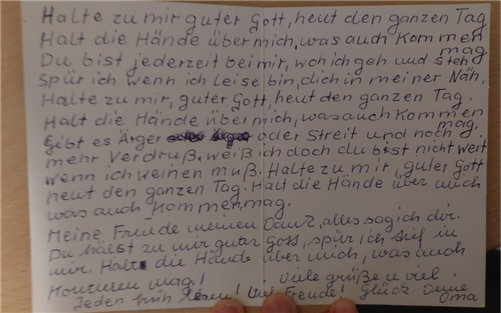 Halte zu mir guter Gott, heut den ganzen Tag
Halt die Hände über mich, was auch kommen mag
Du bist jederzeit bei mir, wo ich geh und steh
Spür ich wenn ich leise bin, dich in meiner Näh.
Halte zu mir, guter Gott, heut den ganzen Tag.
Halt die Hände über mich, was auch kommen mag.
Gibt es Ärger oder Streit und noch
mehr Verdruß, weiß ich doch du bist nicht weit
wenn ich weinen muß. Halte zu mir, guter Gott
heut den ganzen Tag. Halt die Hände über mich
was auch kommen mag.
Meine Freude meinen Dank, alles sag ich dir.
Du hälst zu mir guter Gott, spür ich tief in
mir. Halt die Hände über mich, was auch
kommen mag! Viele grüße u viel
Jeden früh lesen! Viel Freude! Glück Deine
Oma